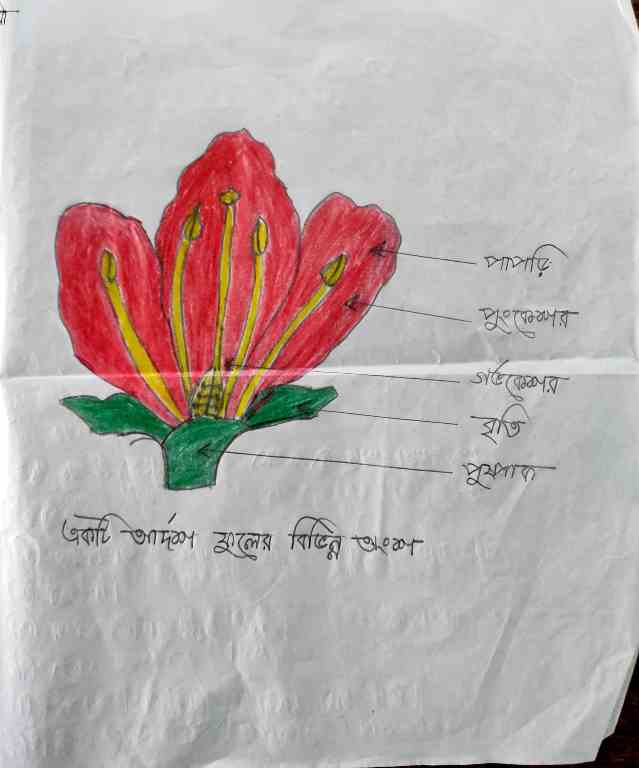 পাপড়ি
পুংকেশর
গর্ভকেশর
বৃতি
পুষ্পাক্ষ
একটি আর্দশ ফুলের বিভিন্ন অংশ